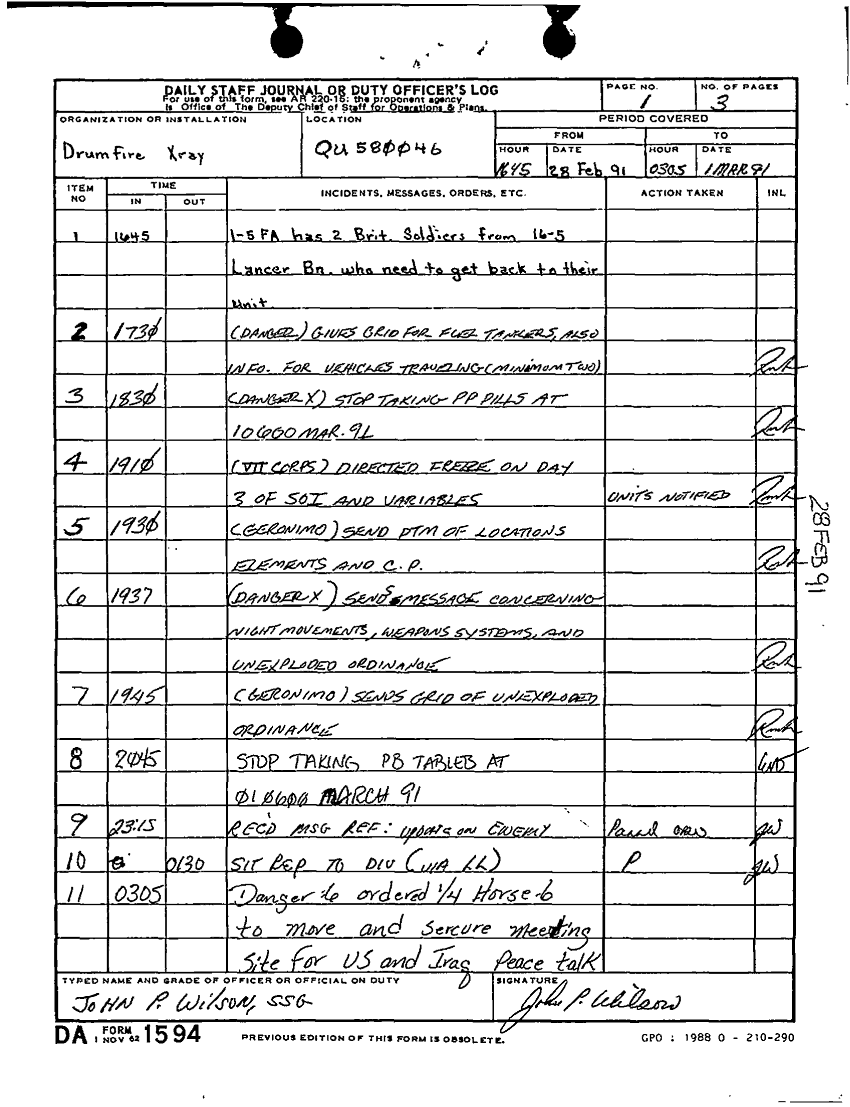 DAILY STAFF JOURNAL OR DUTY OFFICER'S LOG
For use of this form, see AR 220-15; the proponent agency
is Office of The Deputy Chief of Staff for Operations & Plans.
PAGE NO.
1
NO. OF PAGES
3
ORGANIZATION OR INSTALLATION
DrumFire Xray
LOCATION
QU580046
PERIOD COVERED
FROM
TO
HOUR
DATE
HOUR
DATE
1645
28 Feb 91
0305
1 MAR 91
ITEM NO
TIME
IN
OUT
INCIDENTS, MESSAGES, ORDERS, ETC.
ACTION TAKEN
INL
1 1645 1-5 FA has 2 Brit. Soldiers from 16-5
Lancer Bn. who need to get back to their
unit.
2 1730 (DANGER) GIVES GRID FOR FUEL TANKERS, ALSO
INFO. FOR VEHICLES TRAVELING (MINIMOM TWO)
3 1830 (DANGER X) STOP TAKING PP PILLS AT
10600 MAR. 91
4 1910 (VII CORPS) DIRECTED FREEZE ON DAY
3 OF SOI AND VARIABLES UNITS NOTIFIED
5 1930 (GERONIMO) SEND PTM OF LOCATIONS
ELEMENTS AND C.P.
6 1937 (DANGER X) SENDS MESSAGE CONCERNING
NIGHT MOVEMENTS, WEAPONS SYSTEMS, AND
UNEXPLODED ORDINANCE
7 1945 (GERONIMO) SENDS GRID OF UNEXPLODED
ORDINANCE
8 2045 STOP TAKING PB TABLES AT
010600 MARCH 91
9 23:15 REC'D MSG REF: update on ENEMY Passed JW
10 0130 SIT REP TO DIV (VIA LL) P JW
11 0305 Danger 6 ordered 1/4 Horse 6
to move and sercure meeting
Site for US and Iraq Peace talk
28 FEB 91
TYPED NAME AND GRADE OF OFFICER OR OFFICIAL ON DUTY
JOHN P. WILSON, SSG
SIGNATURE
John P. Wilson
DA FORM 1594
1 NOV 62
PREVIOUS EDITION OF THIS FORM IS OBSOLETE.
GPO : 1988 O - 210-290